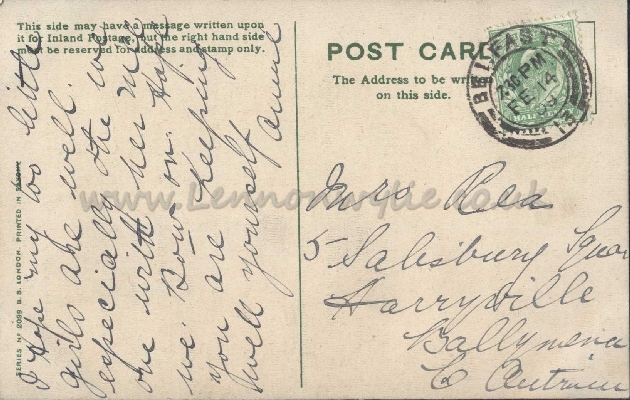 This side may have a message written upon
it for Inland Postage, but the right hand side
must be reserved for address and stamp only.
I hope my too little
girls are well.
especially the wee
one with her Ma
we. Bow on. Hope
you are keeping
well yourself
Annie
SERIES Nº 2099 B. S. LONDON. PRINTED IN SAXONY
POST CARD
The Address to be written
on this side.
BELFAST
7.30 PM
FE 14
13
HALF
Mrs Rea
5 Salisbury Square
Harryville
Ballymena
Co Antrim
www.Lennonwylie.co.uk